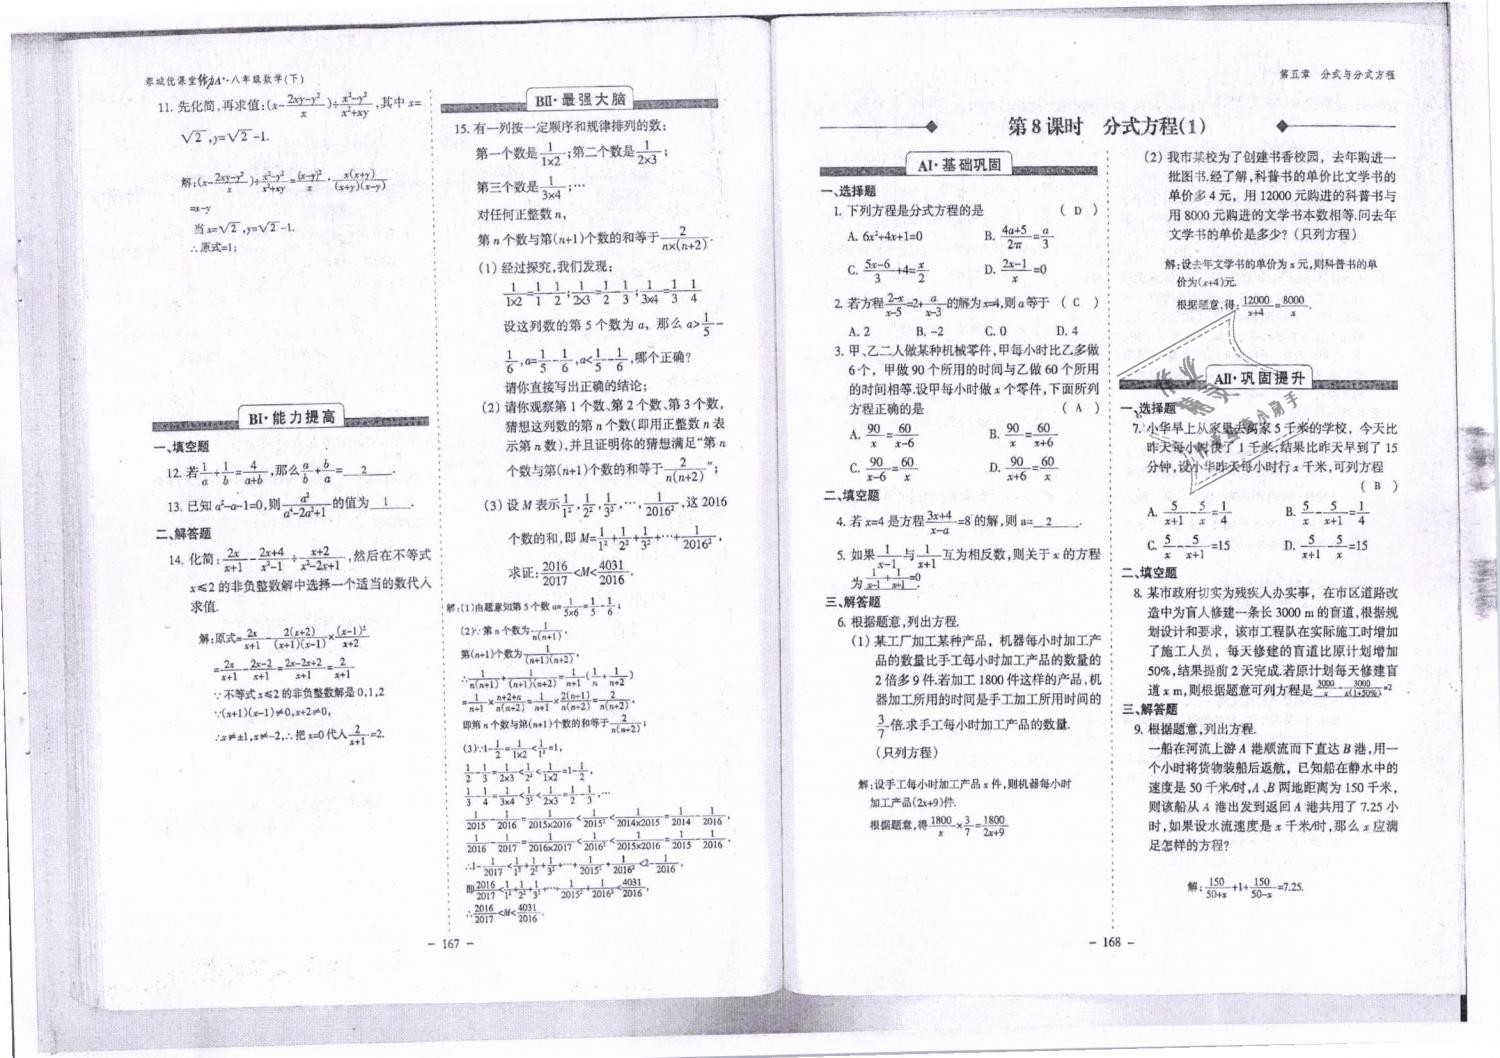 蓉城优课堂 给力A⁺·八年级数学(下)
11. 先化简,再求值:(x-(2xy-y²)/x)÷(x²-y²)/(x²+xy),其中x=
√2,y=√2-1.
解:(x-(2xy-y²)/x)÷(x²-y²)/(x²+xy)=(x-y)²/x·x(x+y)/((x+y)(x-y))
=x-y
当x=√2,y=√2-1.
∴原式=1;
BⅠ·能力提高
一、填空题
12. 若1/a+1/b=4/(a+b),那么a/b+b/a= 2 .
13. 已知a²-a-1=0,则a²/(a⁴-2a³+1)的值为 1 .
二、解答题
14. 化简:2x/(x+1)-(2x+4)/(x²-1)÷(x+2)/(x²-2x+1),然后在不等式
x≤2的非负整数解中选择一个适当的数代入
求值.
解:原式=2x/(x+1)-2(x+2)/((x+1)(x-1))×(x-1)²/(x+2)
=2x/(x+1)-(2x-2)/(x+1)=(2x-2x+2)/(x+1)=2/(x+1)
∵不等式x≤2的非负整数解是0,1,2
∵(x+1)(x-1)≠0,x+2≠0,
∴x≠±1,x≠-2,∴把x=0代入2/(x+1)=2.
BⅡ·最强大脑
15. 有一列按一定顺序和规律排列的数:
第一个数是1/(1×2);第二个数是1/(2×3);
第三个数是1/(3×4);…
对任何正整数n,
第n个数与第(n+1)个数的和等于2/(n×(n+2)).
(1)经过探究,我们发现:
1/(1×2)=1/1-1/2;1/(2×3)=1/2-1/3;1/(3×4)=1/3-1/4
设这列数的第5个数为a,那么a>1/5-
1/6,a=1/5-1/6,a<1/5-1/6,哪个正确?
请你直接写出正确的结论;
(2)请你观察第1个数、第2个数、第3个数,
猜想这列数的第n个数(即用正整数n表
示第n数),并且证明你的猜想满足“第n
个数与第(n+1)个数的和等于2/(n(n+2))”;
(3)设M表示1/1²,1/2²,1/3²,…,1/2016²,这2016
个数的和,即M=1/1²+1/2²+1/3²+…+1/2016²,
求证:2016/2017<M<4031/2016.
解:(1)由题意知第5个数a=1/(5×6)=1/5-1/6;
(2)∵第n个数为1/(n(n+1)),
第(n+1)个数为1/((n+1)(n+2)),
∴1/(n(n+1))+1/((n+1)(n+2))=1/(n+1)(1/n+1/(n+2))
=1/(n+1)×(n+2+n)/(n(n+2))=1/(n+1)×2(n+1)/(n(n+2))=2/(n(n+2)),
即第n个数与第(n+1)个数的和等于2/(n(n+2));
(3)∵1-1/2=1/(1×2)<1/1²=1,
1/2-1/3=1/(2×3)<1/2²<1/(1×2)=1-1/2,
1/3-1/4=1/(3×4)<1/3²<1/(2×3)=1/2-1/3,…
1/2015-1/2016=1/(2015×2016)<1/2015²<1/(2014×2015)=1/2014-1/2015,
1/2016-1/2017=1/(2016×2017)<1/2016²<1/(2015×2016)=1/2015-1/2016,
∴1-1/2017<1/1²+1/2²+1/3²+…+1/2015²+1/2016²<2-1/2016,
即2016/2017<1/1²+1/2²+1/3²+…+1/2015²+1/2016²<4031/2016,
∴2016/2017<M<4031/2016.
- 167 -
第五章 分式与分式方程
第8课时 分式方程(1)
AⅠ·基础巩固
一、选择题
1. 下列方程是分式方程的是 ( D )
A. 6x²+4x+1=0 B. (4a+5)/2π=a/3
C. (5x-6)/3+4=x/2 D. (2x-1)/x=0
2. 若方程(2-x)/(x-5)=2+a/(x-3)的解为x=4,则a等于 ( C )
A. 2 B. -2 C. 0 D. 4
3. 甲、乙二人做某种机械零件,甲每小时比乙多做
6个,甲做90个所用的时间与乙做60个所用
的时间相等.设甲每小时做x个零件,下面所列
方程正确的是 ( A )
A. 90/x=60/(x-6) B. 90/x=60/(x+6)
C. 90/(x-6)=60/x D. 90/(x+6)=60/x
二、填空题
4. 若x=4是方程(3x+4)/(x-a)=8的解,则a= 2 .
5. 如果1/(x-1)与1/(x+1)互为相反数,则关于x的方程
为 1/(x-1)+1/(x+1)=0 .
三、解答题
6. 根据题意,列出方程.
(1)某工厂加工某种产品,机器每小时加工产
品的数量比手工每小时加工产品的数量的
2倍多9件.若加工1800件这样的产品,机
器加工所用的时间是手工加工所用时间的
3/7倍.求手工每小时加工产品的数量.
(只列方程)
解:设手工每小时加工产品x件,则机器每小时
加工产品(2x+9)件.
根据题意,得1800/x×3/7=1800/(2x+9)
(2)我市某校为了创建书香校园,去年购进一
批图书.经了解,科普书的单价比文学书的
单价多4元,用12000元购进的科普书与
用8000元购进的文学书本数相等.问去年
文学书的单价是多少?(只列方程)
解:设去年文学书的单价为x元,则科普书的单
价为(x+4)元.
根据题意,得:12000/(x+4)=8000/x.
AⅡ·巩固提升
一、选择题
7. 小华早上从家里去离家5千米的学校,今天比
昨天每小时快了1千米,结果比昨天早到了15
分钟,设小华昨天每小时行x千米,可列方程
( B )
A. 5/(x+1)-5/x=1/4 B. 5/x-5/(x+1)=1/4
C. 5/x-5/(x+1)=15 D. 5/(x+1)-5/x=15
二、填空题
8. 某市政府切实为残疾人办实事,在市区道路改
造中为盲人修建一条长3000 m的盲道,根据规
划设计和要求,该市工程队在实际施工时增加
了施工人员,每天修建的盲道比原计划增加
50%,结果提前2天完成.若原计划每天修建盲
道x m,则根据题意可列方程是 3000/x-3000/(x(1+50%))=2
三、解答题
9. 根据题意,列出方程.
一船在河流上游A港顺流而下直达B港,用一
个小时将货物装船后返航,已知船在静水中的
速度是50千米/时,A、B两地距离为150千米,
则该船从A港出发到返回A港共用了7.25小
时,如果设水流速度是x千米/时,那么x应满
足怎样的方程?
解:150/(50+x)+1+150/(50-x)=7.25.
- 168 -